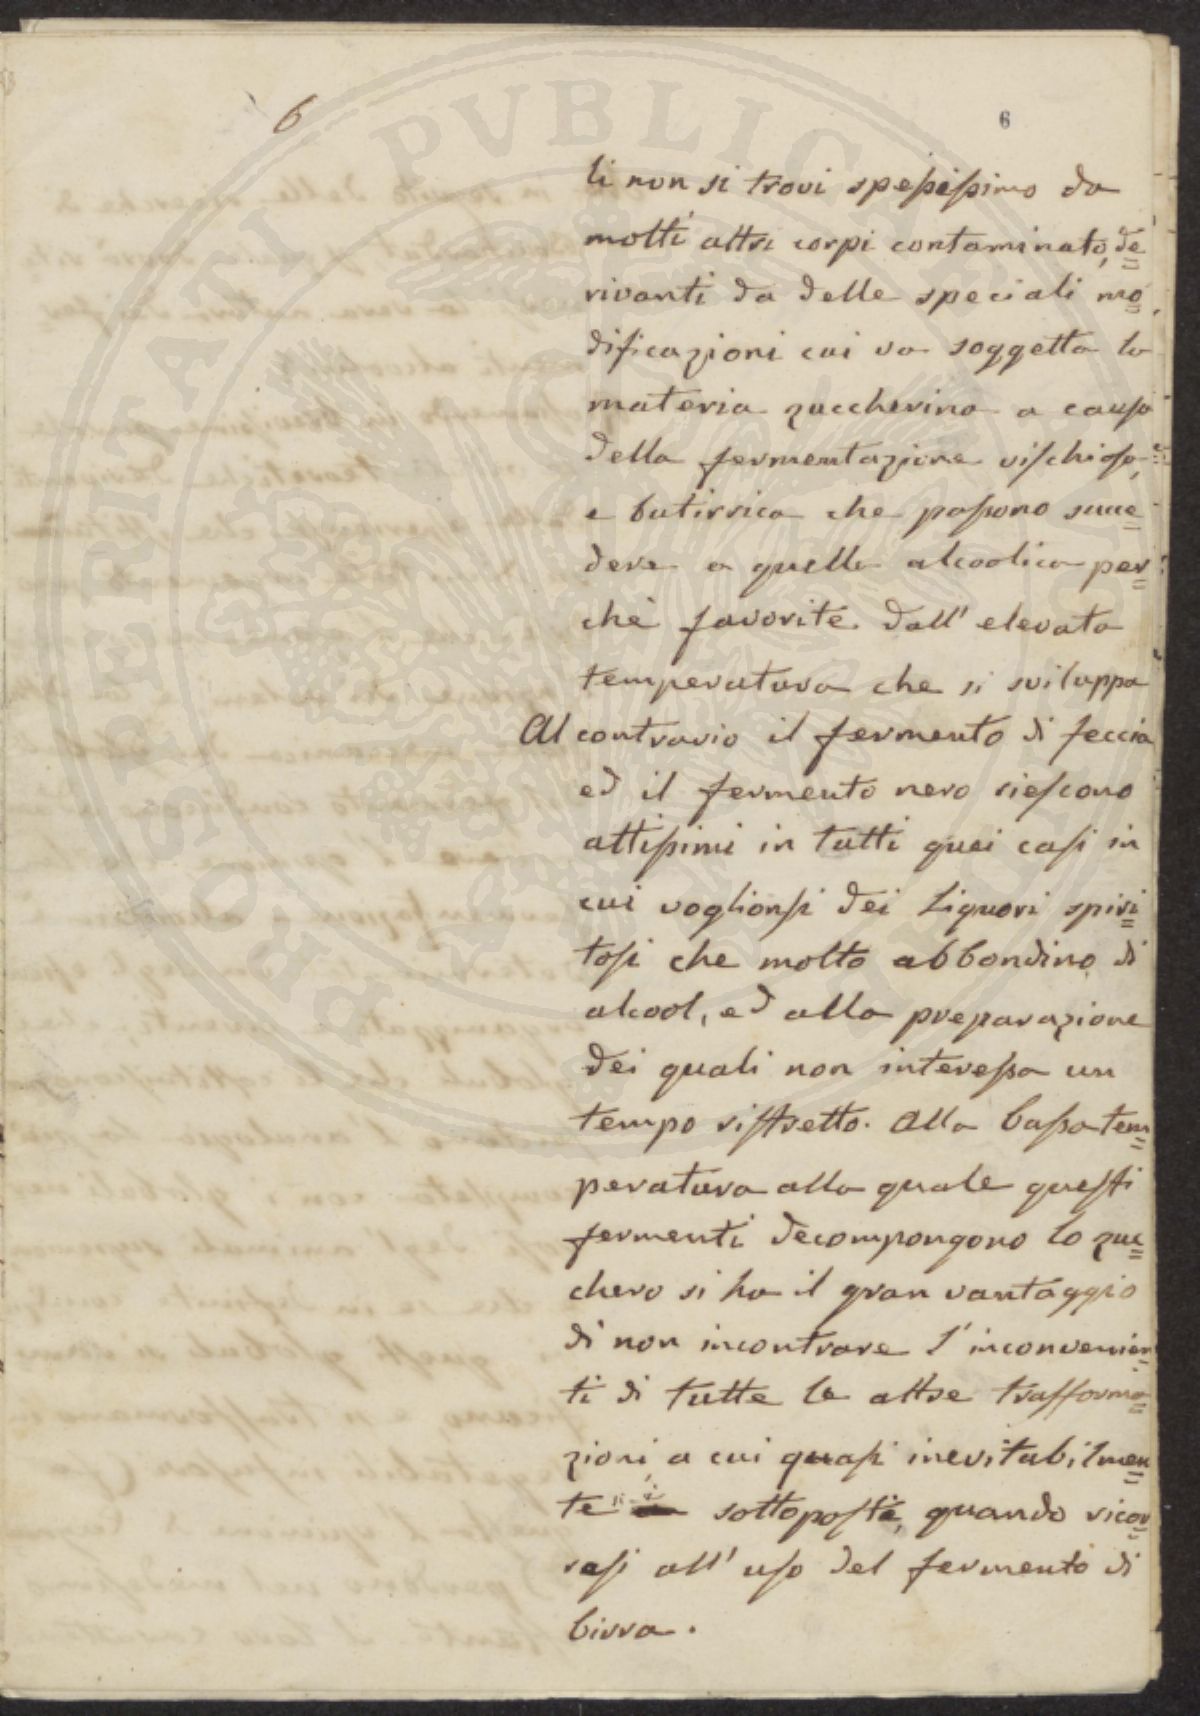 6
6
li non si trovi spessissimo da
molti altri corpi contaminato, de=
rivanti da delle speciali mo=
dificazioni cui va soggetta la
materia zuccherina a causa
della fermentazione vischiosa,
e butirrica che possono succe=
dere a quella alcoolica per=
chè favorite dall' elevata
temperatura che si sviluppa
Al contrario il fermento di feccia
ed il fermento nero riescono
attissimi in tutti quei casi in
cui voglionsi dei Liquori spiri=
tosi che molto abbondino di
alcool, ed alla preparazione
dei quali non interessa un
tempo ristretto. Alla bassa tem=
peratura alla quale questi
fermenti decompongono lo zuc=
chero si ha il gran vantaggio
di non incontrare l' inconvenien=
ti di tutte le altre trasforma=
zioni a cui quasi inevitabilmen=
te sottoposti, quando ricor=
resi all' uso del fermento di
birra.
PROSPERITATI PVBLICAE